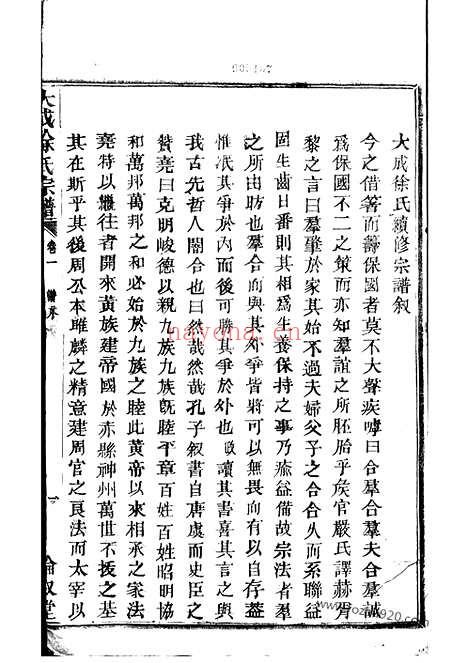 大成徐氏續修宗譜叙
今之借箸而籌保國者莫不大聲疾嘑曰合羣合羣夫合羣誠
爲保國不二之策而亦知羣誼之所胚胎乎矦官嚴氏譯赫胥
黎之言曰羣肇於家其始不過夫婦父子之合合久而系聯益
固生齒日番則其相爲生養保持之事乃愈益備故宗法者羣
之所由昉也羣合而與其外爭皆將可以無畏而有以自存蓋
惟泯其爭於內而後可勝其爭於外也 讀其書喜其言之與
我古先哲人闇合也曰然哉然哉孔子叙書自唐虞而史臣之
贊堯曰克明峻德以親九族九族旣睦平章百姓百姓昭明協
和萬邦萬邦之和必始於九族之睦此黃帝以來相承之家法
堯特以繼往者開來黃族建帝國於赤縣神州萬世不拔之基
其在斯乎其後周公本雎麟之精意建周官之良法而太宰以
大成徐氏宗譜
卷一
一
倫叙堂
nayona.cn